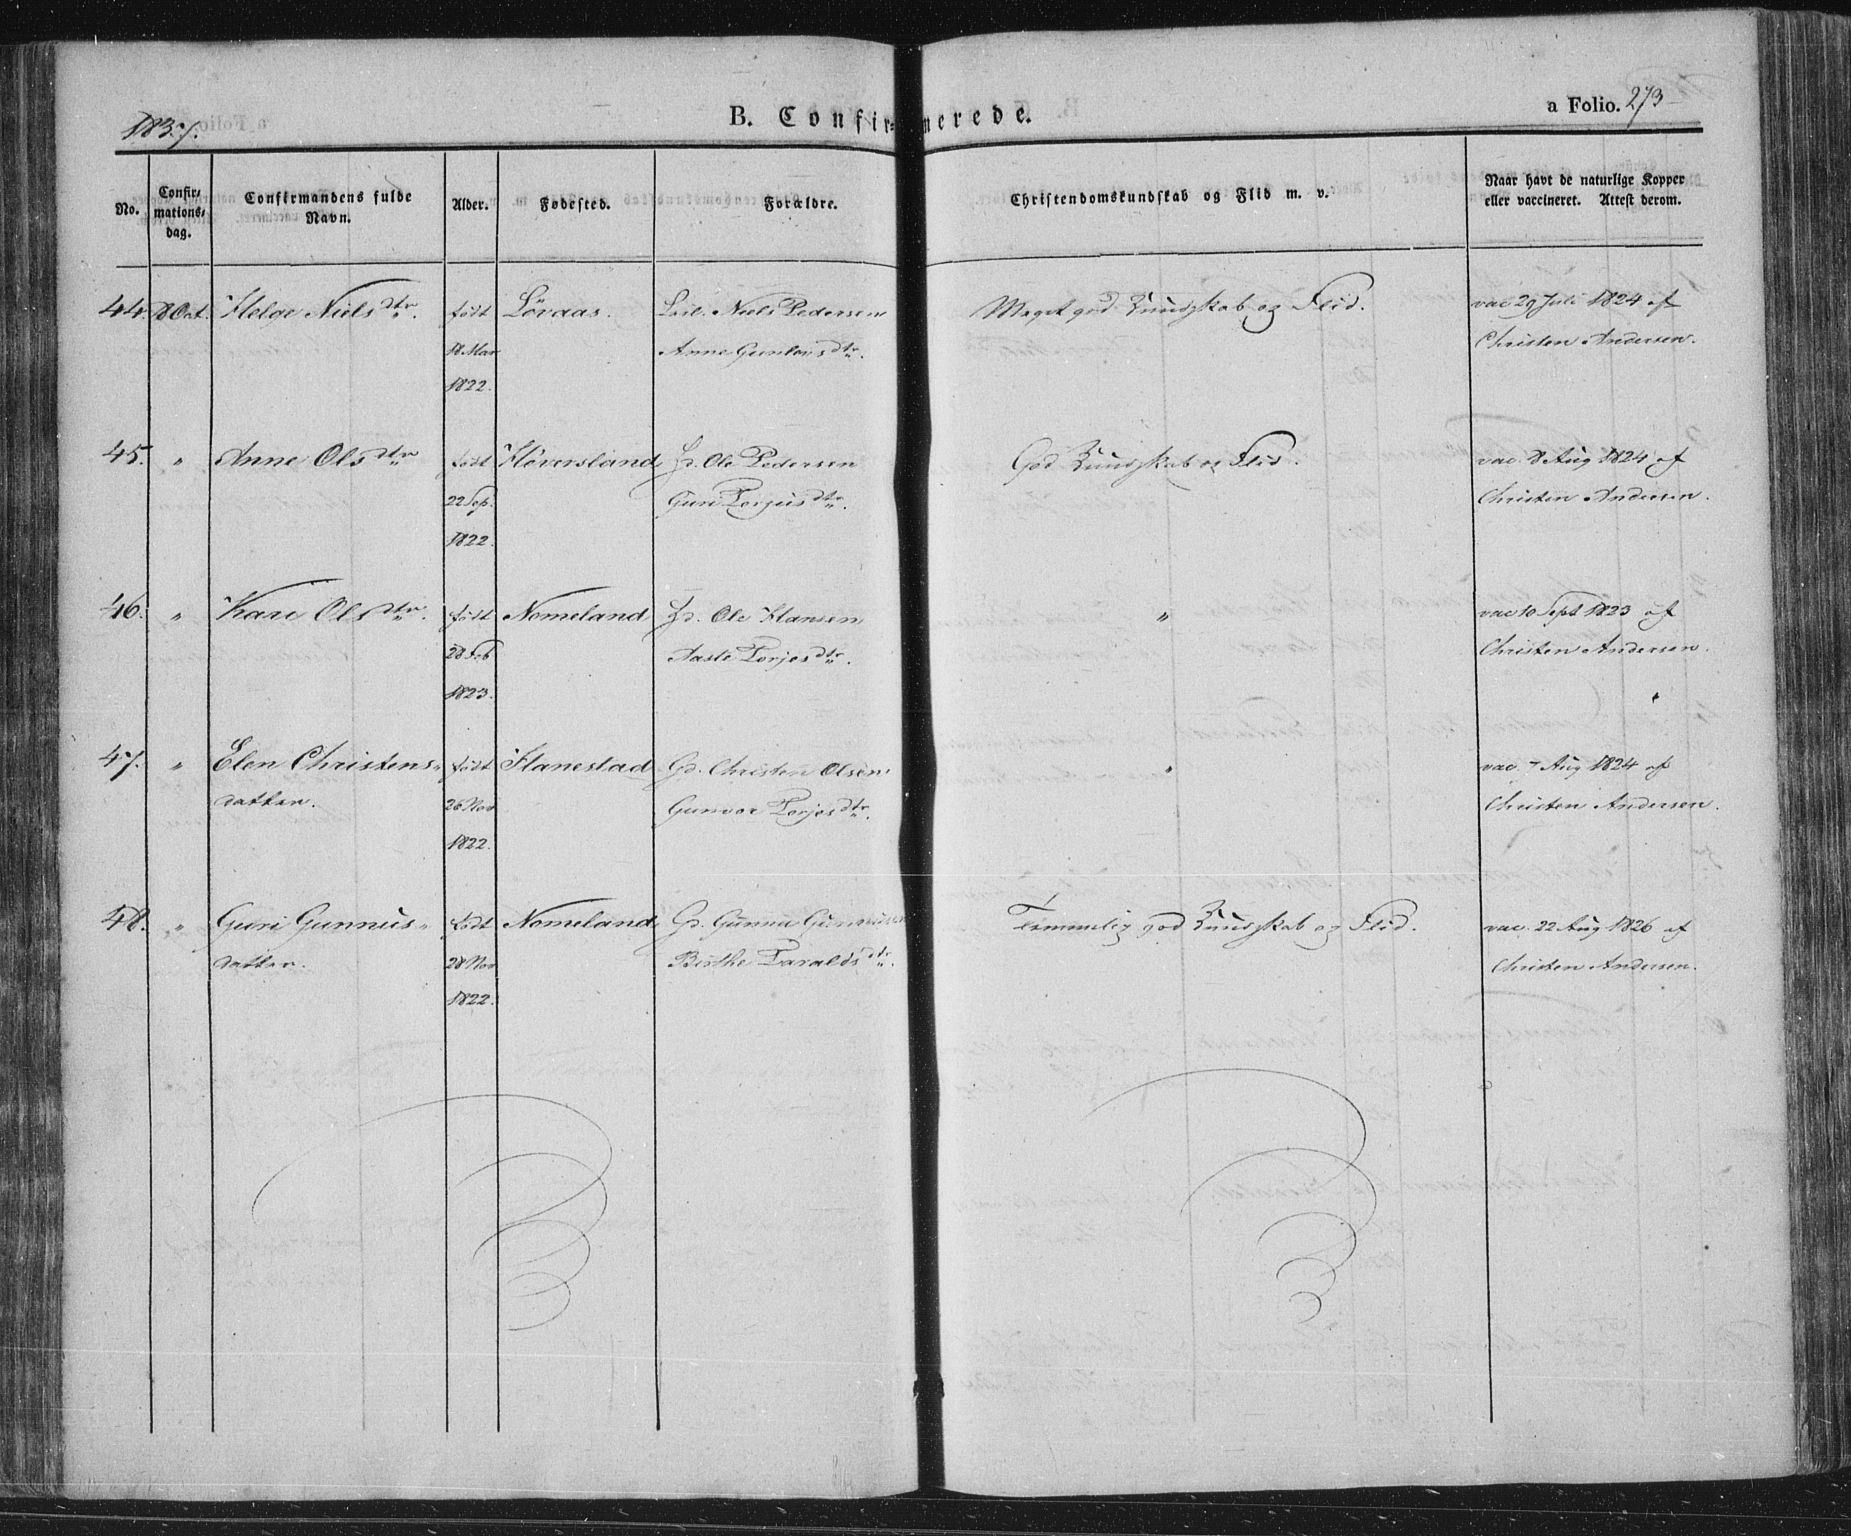 1837.
B. Confirmerede.
a Folio. 273
No.
Confir-
mations-
dag.
Confirmandens fulde
Navn.
Alder.
Fødested.
Forældre.
Christendomskundskab og Flid m. v.
Naar havt de naturlige Kopper
eller vaccineret. Attest derom.
44. 8 Oct. Helge Nielsdtr. født Løvaas. Niels Pedersen Meget god Kundskab og Flid. vac 29 Juli 1824 af
18 Mar Anne Gunlausdtr. Christen Andersen.
1822.
45. " Anne Olsdtr født Høversland Gd. Ole Pedersen God Kundskab og Flid. vac. 8 Aug 1824 af
22 Sep. Guri Torjusdtr. Christen Andersen.
1822.
46. " Kari Olsdtr. født Nomeland Gd. Ole Hansen " vac 10 Sept 1823 af
28 Feb Aaste Torjesdtr. Christen Andersen.
1823.
47. " Elen Christens- født Hanestad Gd. Christen Olsen. " vac. 7 Aug 1824 af
datter. 26 Nov Gunvor Torjesdtr. Christen Andersen.
1822.
48. " Guri Gunnus- født Nomeland Gd. Gunnu Gunnusen Temmelig god Kundskab og Flid. vac. 22 Aug 1826 af
datter. 28 Nov Birthe Taraldsdtr. Christen Andersen.
1822.